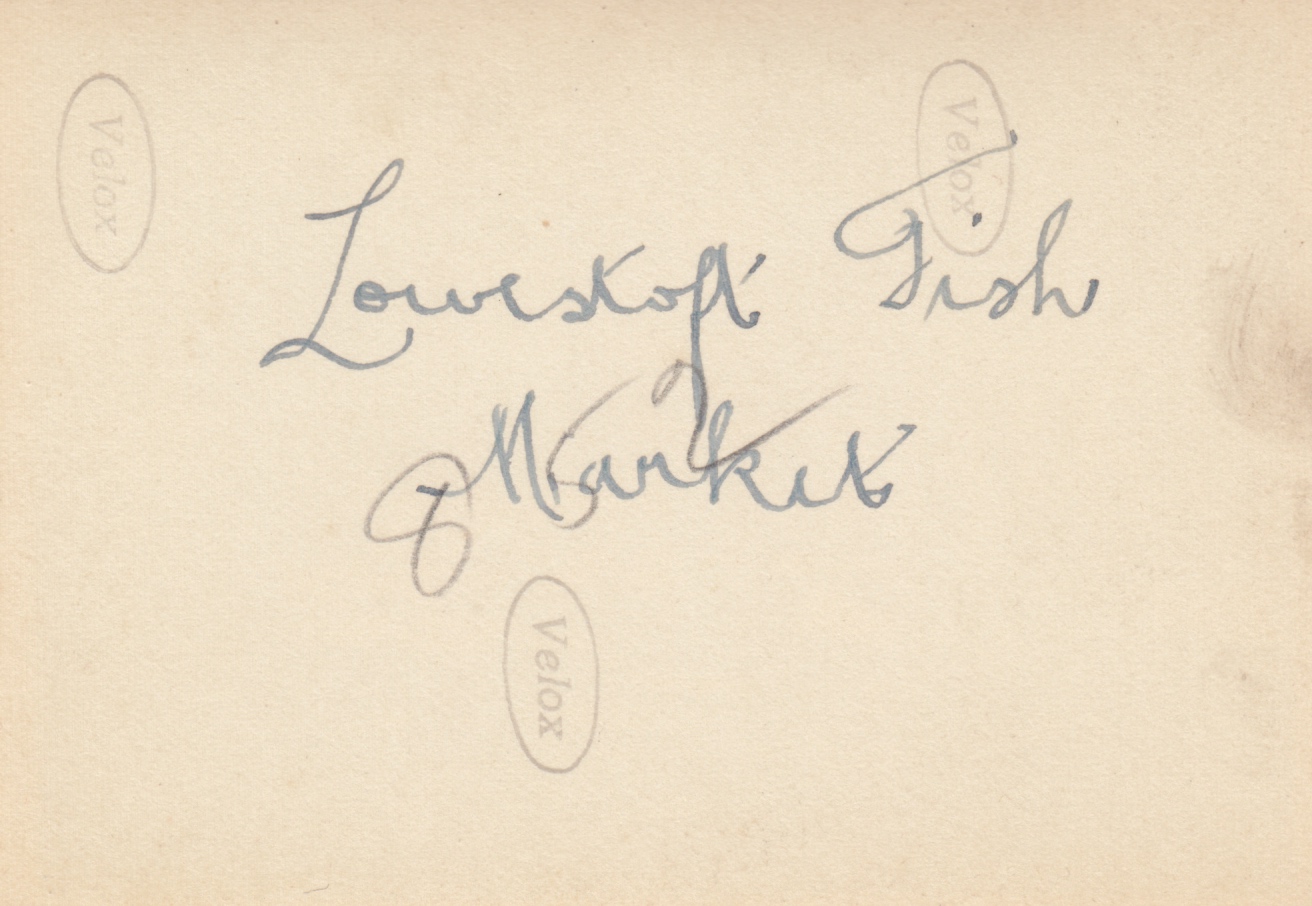 Velox
Velox
Lowestoft Fish
Market
852
Velox